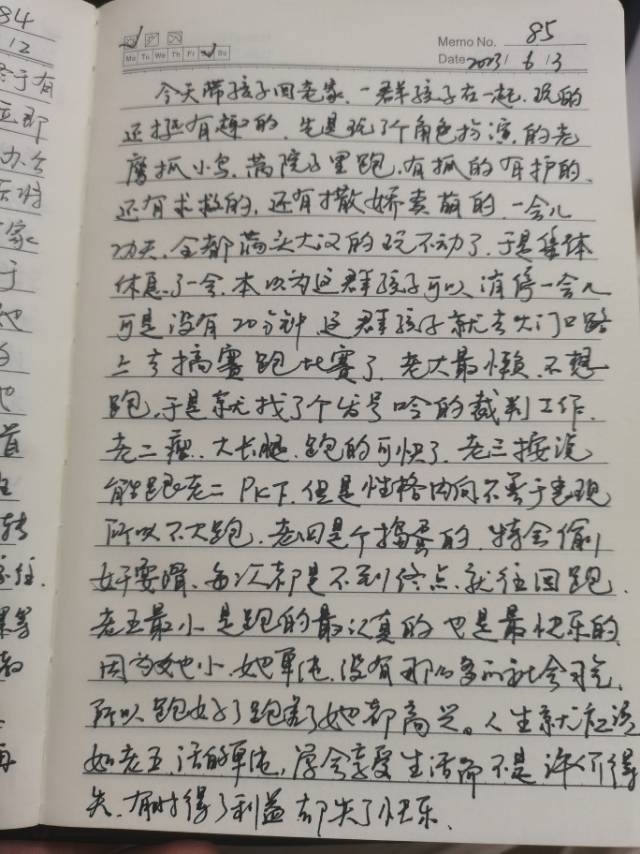 84
12
Memo No. 85
Mo Tu We Th Fr Sa Su
Date 2023 / 6 / 3
今天带孩子回老家，一群孩子在一起，玩的
还挺有趣的，先是玩了个角色扮演，的老
鹰抓小鸟，满院子里跑，有抓的有护的，
还有求救的，还有撒娇卖萌的，一会儿
功夫，全都满头大汉的玩不动了，于是集体
休息了一会，本以为这群孩子可以消停一会儿
可是没有20分钟，这群孩子就去大门口路
上去搞赛跑比赛了，老大最懒，不想
跑，于是就找了个发号吟的裁判工作，
老二瘦，大长腿，跑的可快了，老三按说
能跟老二PK下，但是性格内向不善于表现
所以不大跑，老四是个捣蛋的，特会偷
奸耍滑，每次都是不到终点，就往回跑，
老五最小是跑的最认真的也是最快乐的，
因为她小，她单纯，没有那么多的社会习气，
所以跑好了跑差了她都高兴。人生就应该
如老五，活的单纯，学会享受生活而不是计较得
失，有时得了利益却失了快乐。